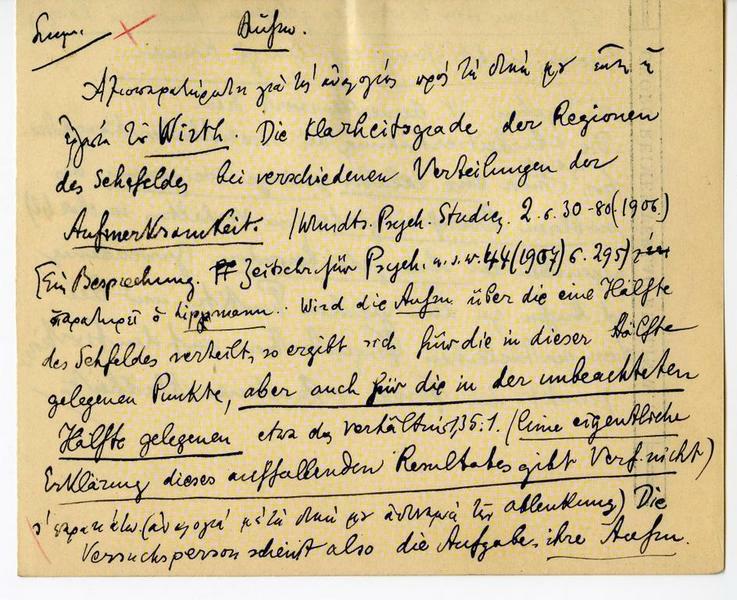 Aufm.
Ἀξιοπαρατήρητη γιὰ τὶς ἀναλογίες πρὸς τὰ δικά μου εἶναι ἡ
τοῦ Wirth. Die Klarheitsgrade der Regionen
des Sehfeldes bei verschiedenen Verteilungen der
Aufmerksamkeit. (Wundts. Psych. Studien. 2. S. 30-80 (1906)
[Ein Besprechung. Zeitschr. für Psych. u.s.w. 44 (1907) S. 295)
παρατηρεῖ ὁ Lippmann.. Wird die Aufm. über die eine Hälfte
des Sehfeldes verteilt, so ergibt sich für die in dieser Hälfte
gelegenen Punkte, aber auch für die in der unbeachteten
Hälfte gelegenen etwa das Verhältnis 1,35:1. (Eine eigentliche
Erklärung dieses auffallenden Resultates gibt Verf. nicht)
παρακάτω (ἀναλογία μὲ τὰ δικά μου τῆς Ablenkung) Die
Versuchsperson scheint also die Aufgabe, ihre Aufm.